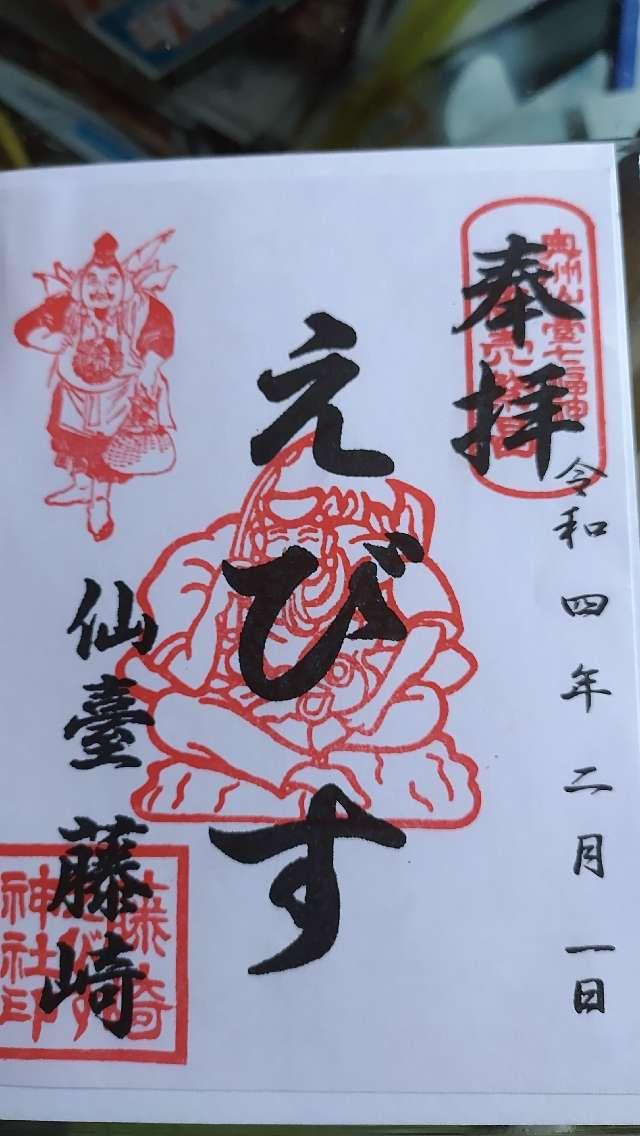 奉拝
奥州仙臺七福神
令和四年二月一日
えびす
仙臺 藤崎
藤崎
えびす
神社印